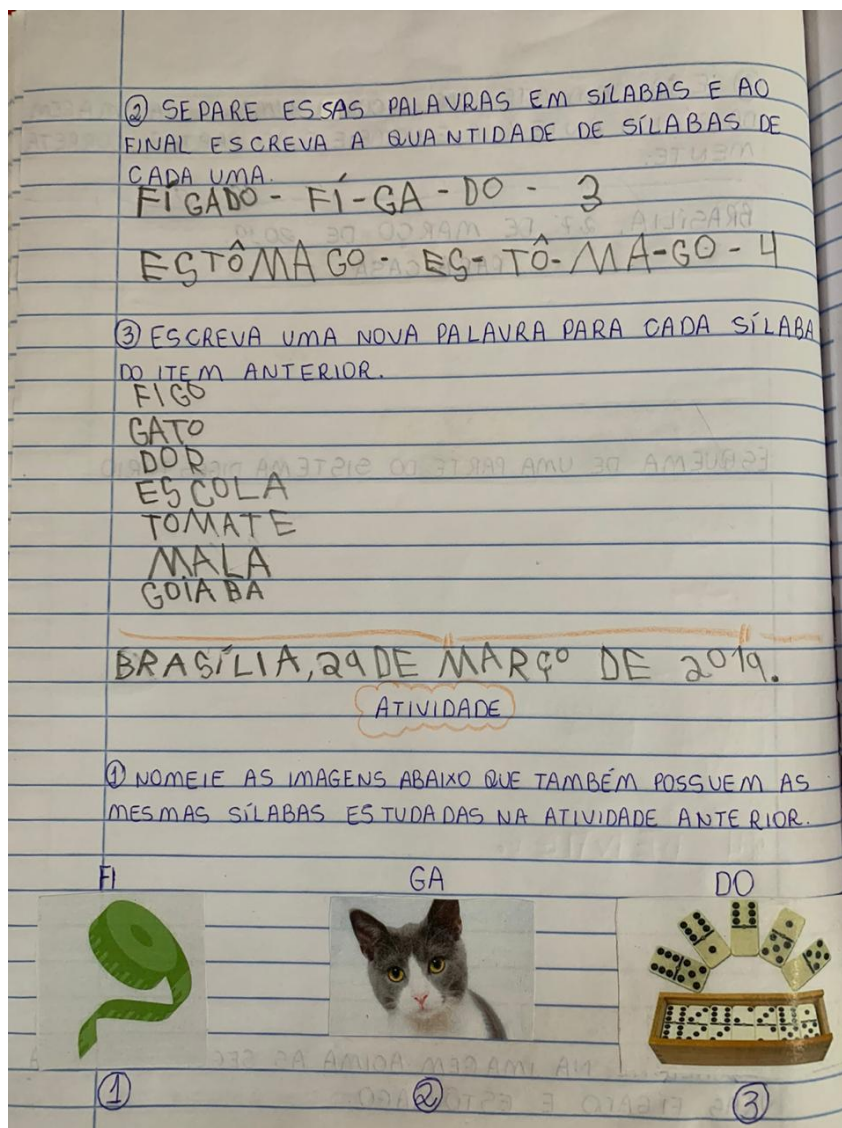 ② SEPARE ESSAS PALAVRAS EM SÍLABAS E AO
FINAL ESCREVA A QUANTIDADE DE SÍLABAS DE
CADA UMA.
FÍGADO - FÍ-GA-DO - 3
ESTÔMAGO - ES-TÔ-MA-GO - 4
③ ESCREVA UMA NOVA PALAVRA PARA CADA SÍLABA
DO ITEM ANTERIOR.
FIGO
GATO
DOR
ESCOLA
TOMATE
MALA
GOIABA
BRASÍLIA, 29 DE MARÇO DE 2019.
ATIVIDADE
① NOMEIE AS IMAGENS ABAIXO QUE TAMBÉM POSSUEM AS
MESMAS SÍLABAS ESTUDADAS NA ATIVIDADE ANTERIOR.
FI GA DO
① ② ③